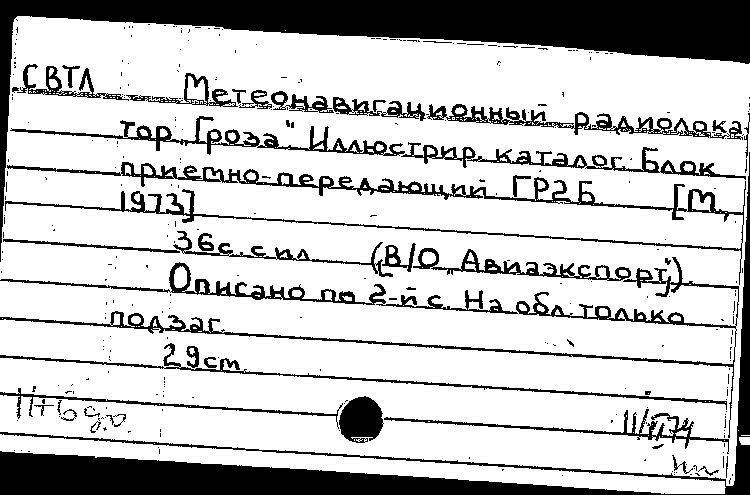 СВТЛ Метеонавигационный радиолока
тор „Гроза". Иллюстрир. каталог. Блок
приемно-передающий ГР2Б [М.,
1973]
36с. с ил (В/О „Авиаэкспорт").
Описано по 2-й с. На обл. только
подзаг.
29см
11/VI 74